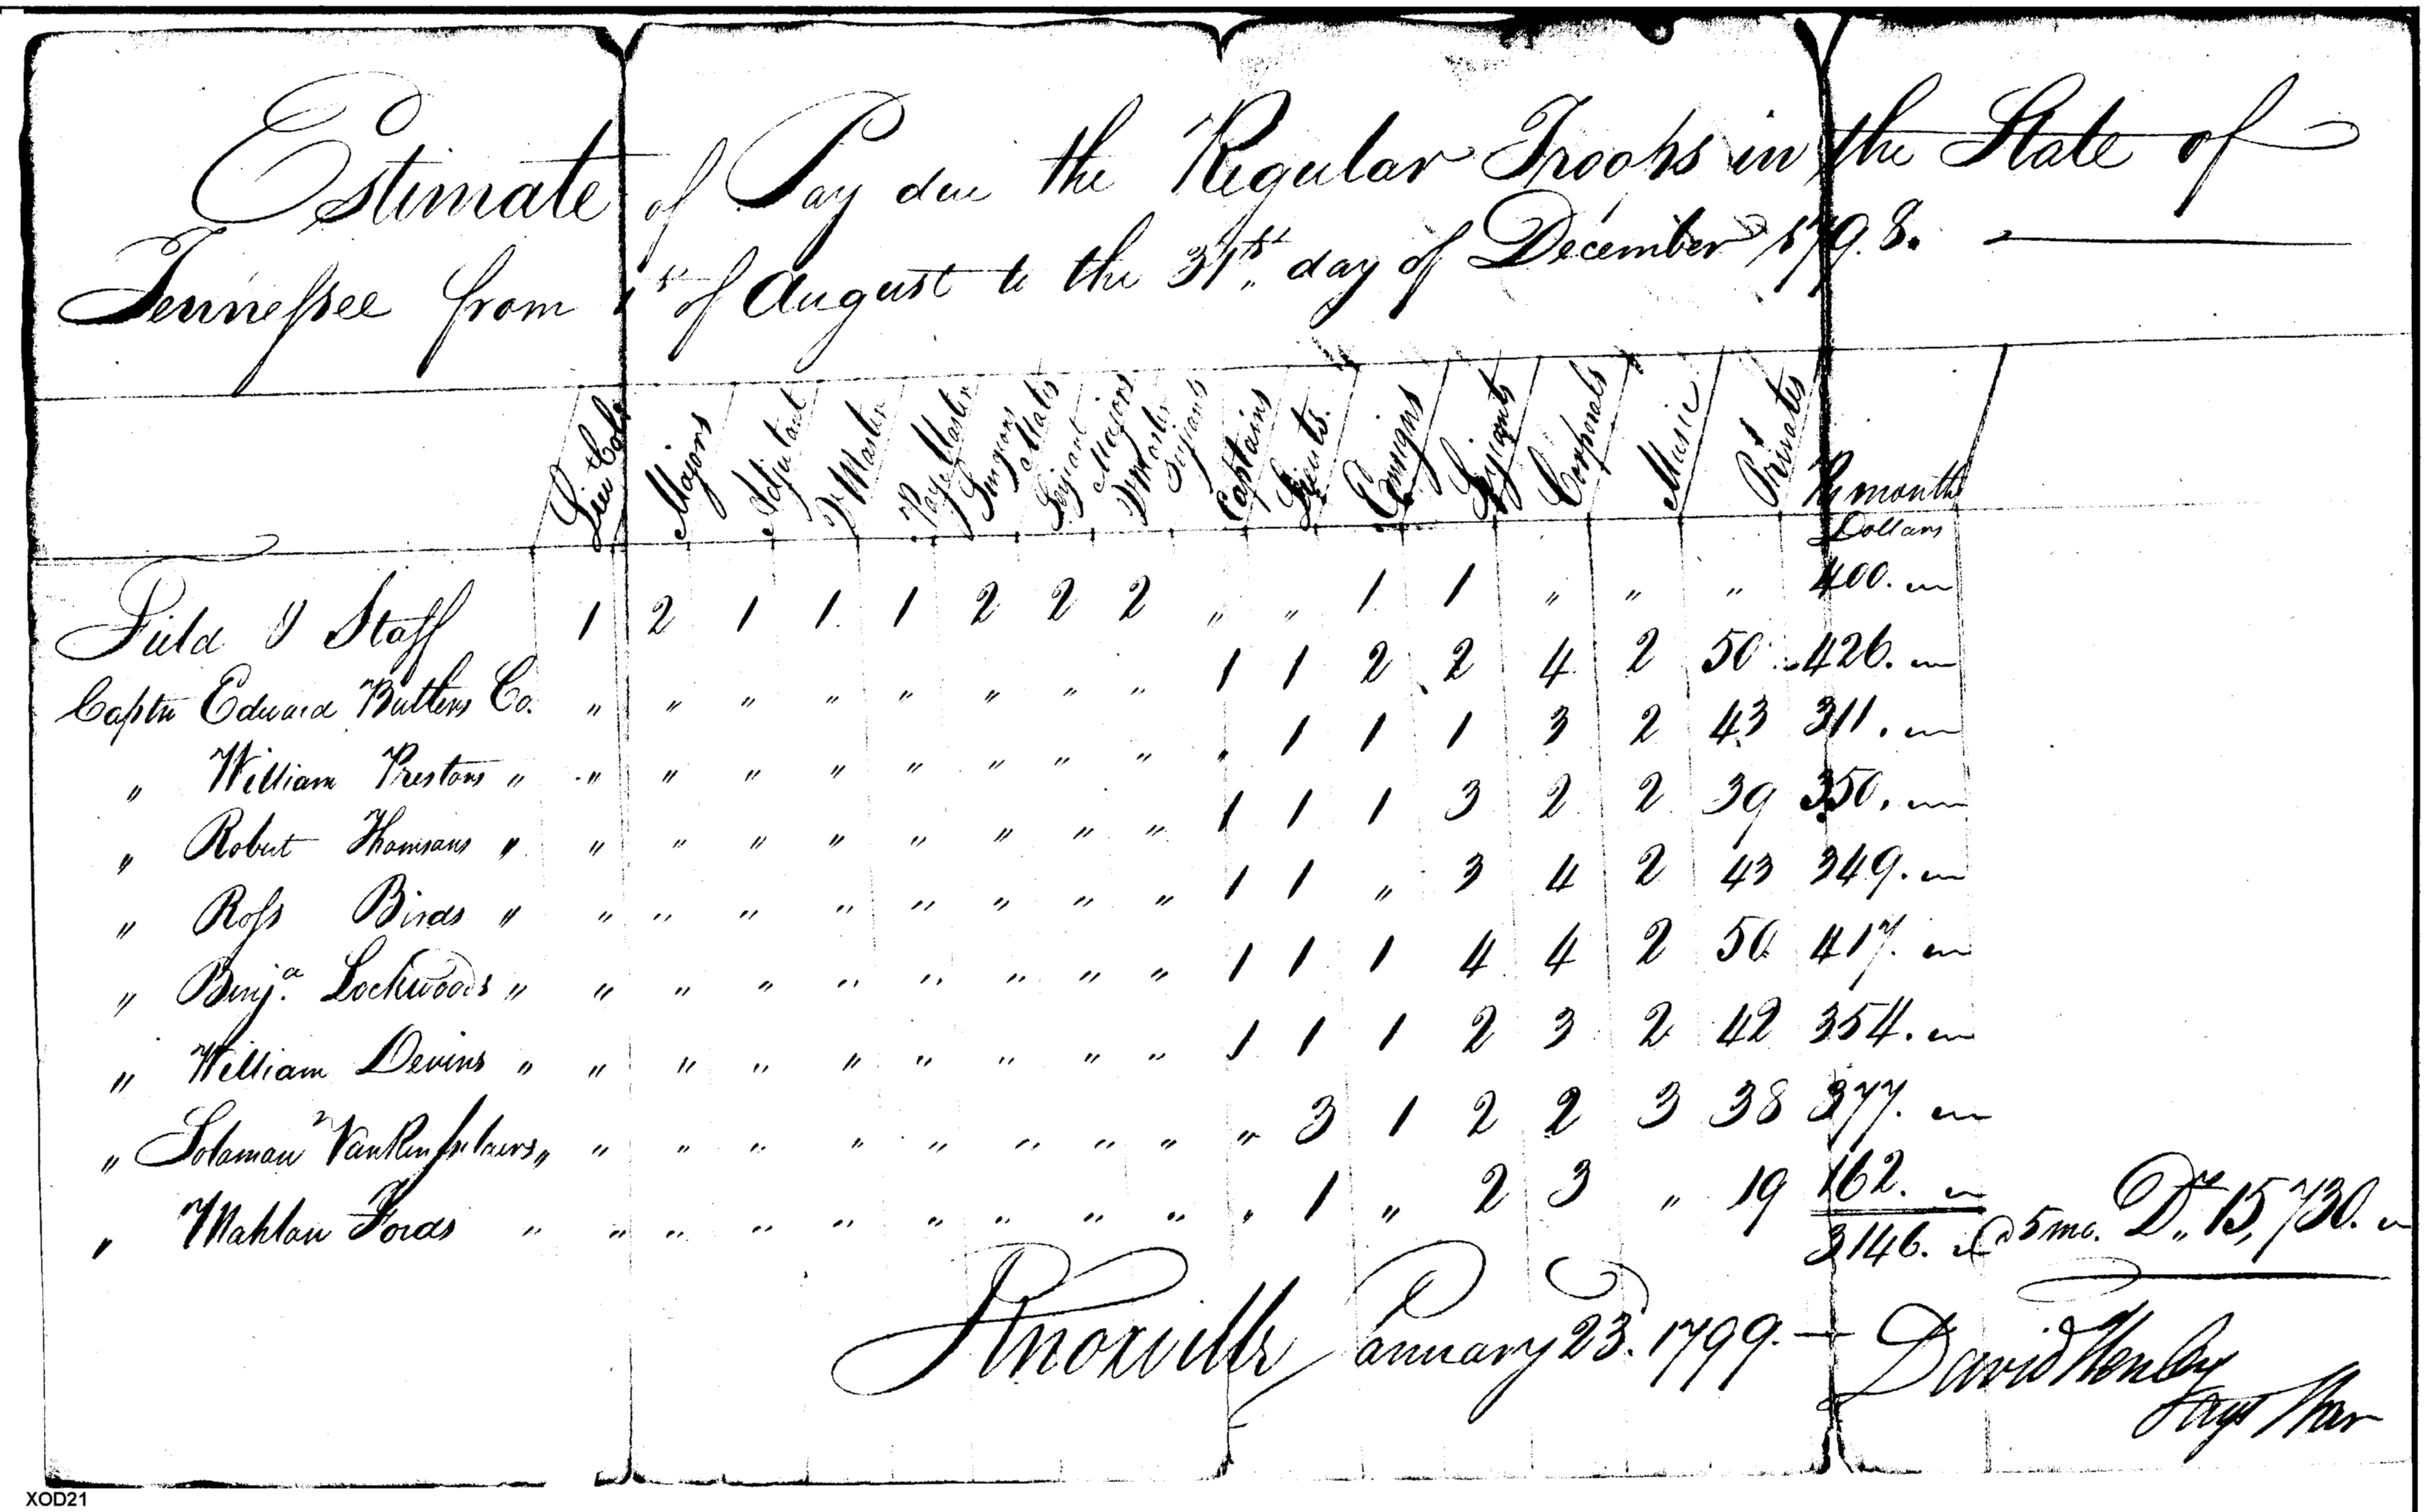 Estimate of Pay due the Regular Troops in the State of
Tennessee from 1st of August to the 31st day of December 1798.
Lieu Colo Majors Adjutant Qr Master Pay Master Surgeons Mates Serjeant Majors Qr Master Serjeants Captains Lieuts. Ensigns Serjeants Corporals Music Privates Pr month
Dollars
Field & Staff 1 2 1 1 1 2 2 2 " " 1 1 " " " 400.
Captn Edward Butlers Co. " " " " " " " " 1 1 2 2 4 2 50 426.
" William Prestons " " " " " " " " " " 1 1 1 3 2 43 311.
" Robert Thomsons " " " " " " " " " 1 1 1 3 2 2 39 350.
" Ross Birds " " " " " " " " " 1 1 " 3 4 2 43 349.
" Benja. Lockwoods " " " " " " " " " 1 1 1 4 4 2 50 417.
" William Devins " " " " " " " " " 1 1 1 2 3 2 42 354.
" Solaman Van Rensselaers " " " " " " " " " " 3 1 2 2 3 38 377.
" Mahlan Fords " " " " " " " " " " 1 " 2 3 " 19 162.
3146. @ 5 mo. Drs 15,730.
Knoxville January 23. 1799. — David Henley
Agt War
XOD21